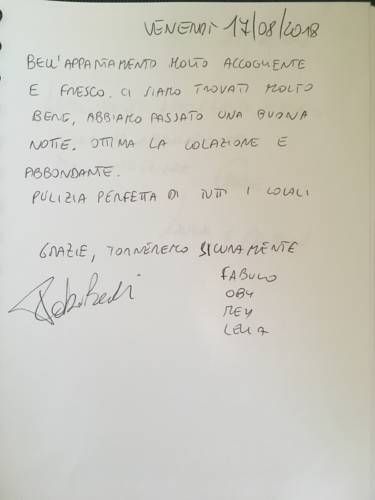 VENERDÌ 17/08/2018
BELL'APPARTAMENTO MOLTO ACCOGLIENTE
E FRESCO. CI SIAMO TROVATI MOLTO
BENE, ABBIAMO PASSATO UNA BUONA
NOTTE. OTTIMA LA COLAZIONE E
ABBONDANTE.
PULIZIA PERFETTA DI TUTTI I LOCALI
GRAZIE, TORNEREMO SICURAMENTE
OBY